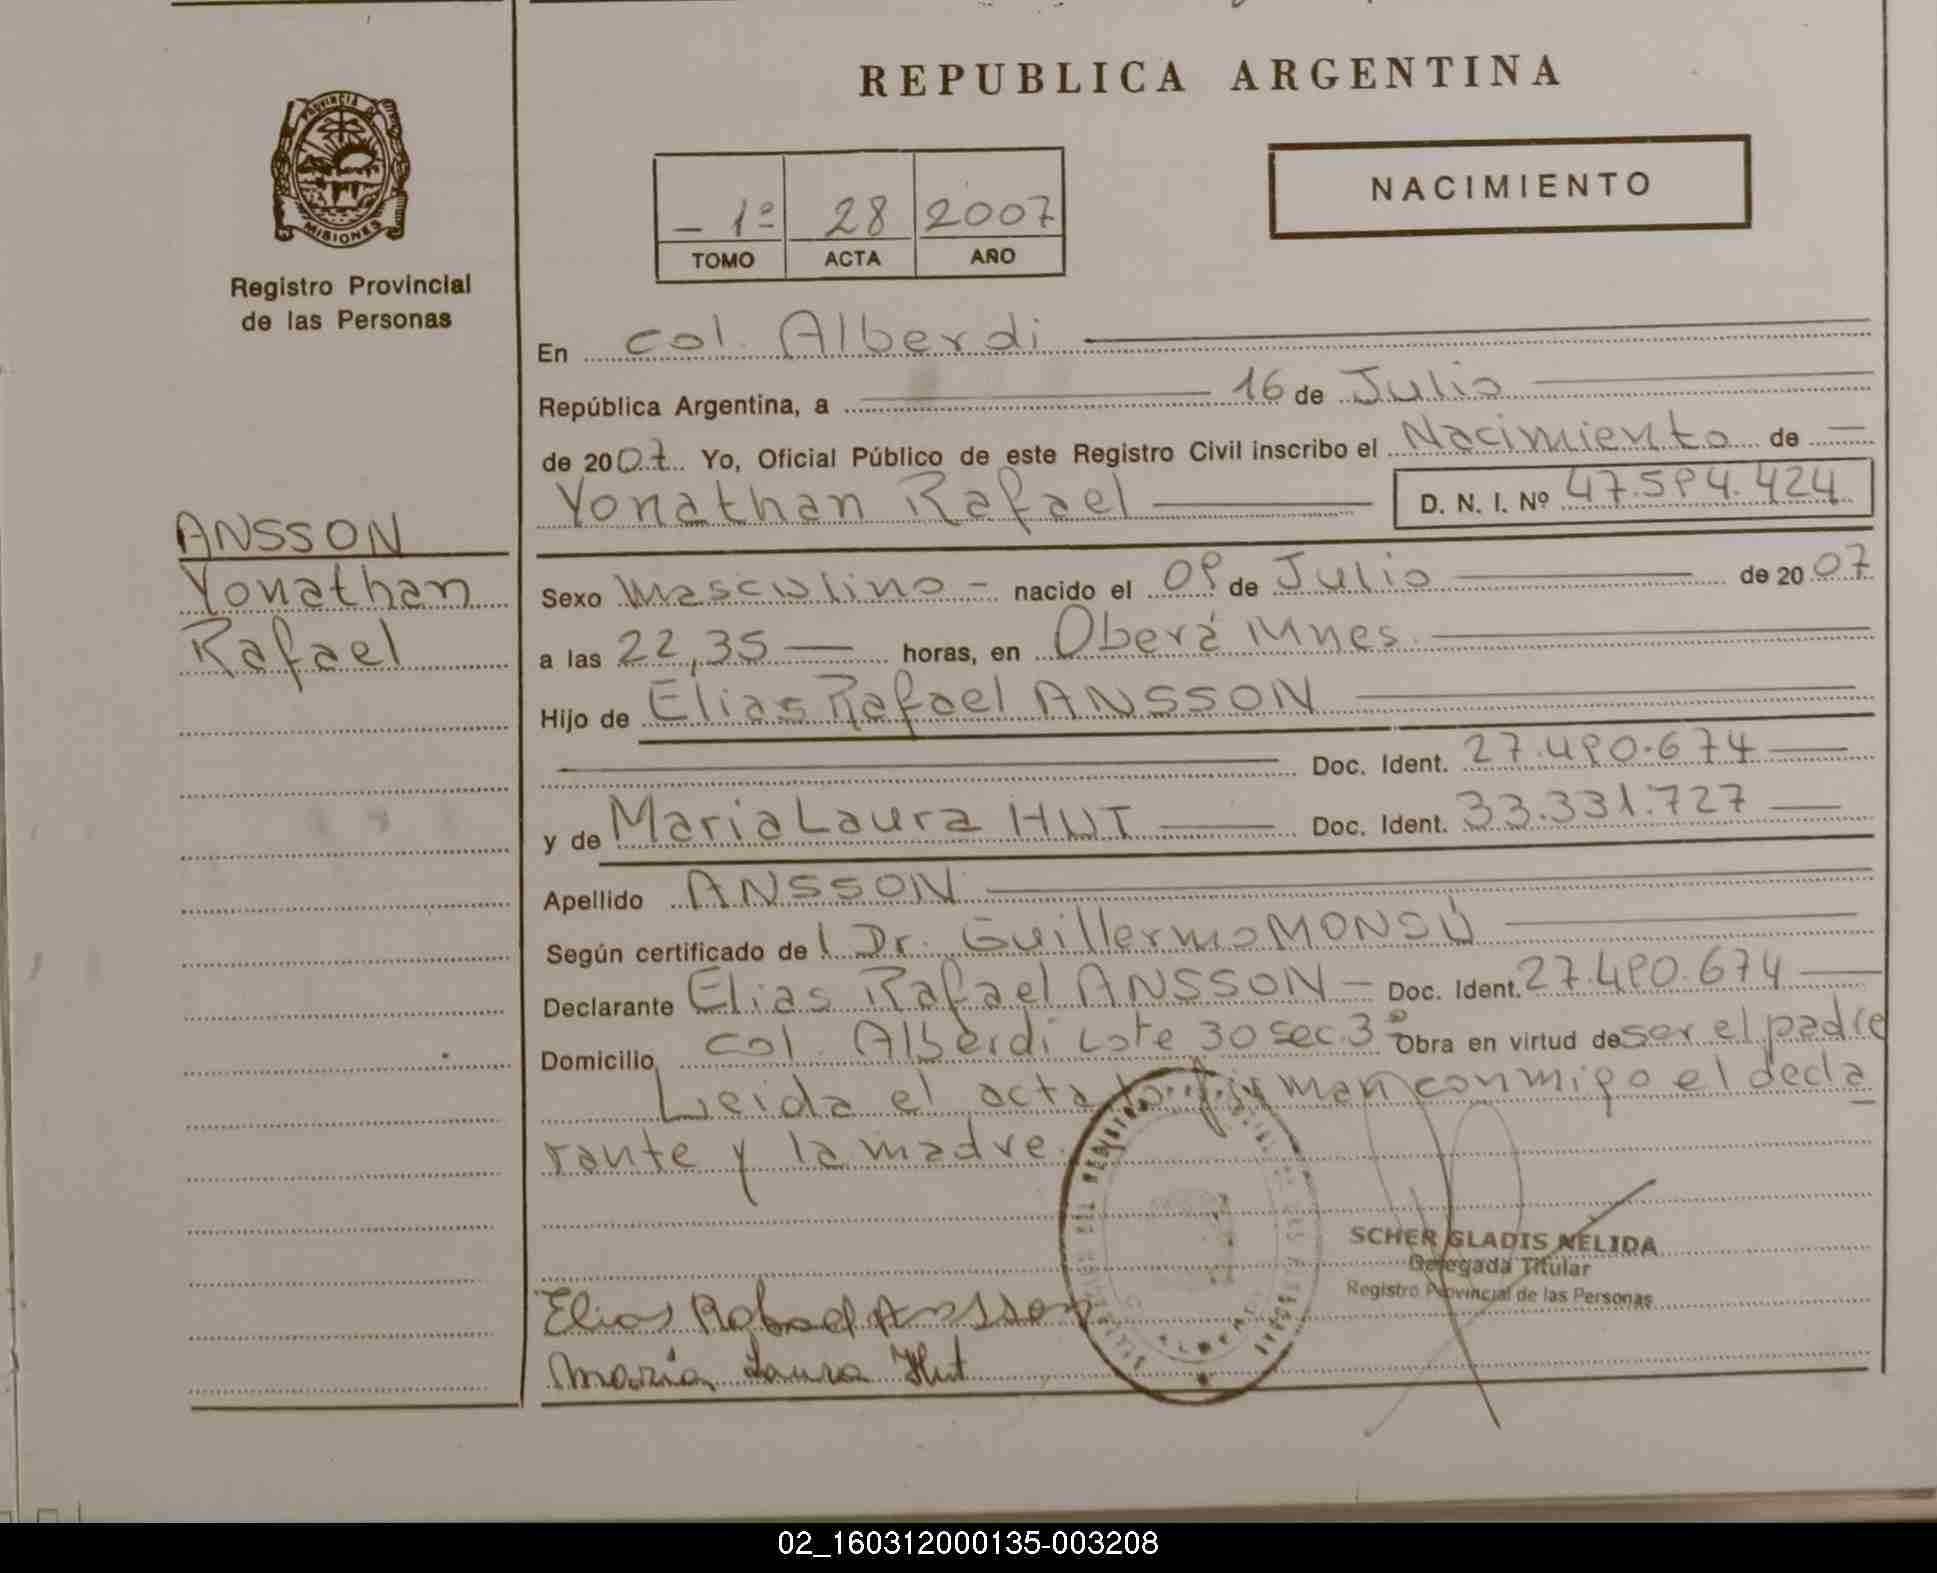 REPUBLICA ARGENTINA
PROVINCIA DE
MISIONES
Registro Provincial
de las Personas
- 1º 28 2007
TOMO ACTA AÑO
NACIMIENTO
En Col. Alberdi
República Argentina, a 16 de Julio
de 2007 Yo, Oficial Público de este Registro Civil inscribo el Nacimiento de —
Yonathan Rafael — D. N. I. Nº 47.594.424
ANSSON
Yonathan
Rafael
Sexo Masculino - nacido el 09 de Julio — de 2007
a las 22,35 — horas, en Oberá Mnes.
Hijo de Elias Rafael ANSSON
Doc. Ident. 27.490.674 —
y de Maria Laura HUT — Doc. Ident. 33.331.727 —
Apellido ANSSON
Según certificado de l Dr. Guillermo MONSÚ
Declarante Elias Rafael ANSSON - Doc. Ident. 27.490.674 —
Domicilio Col. Alberdi Lote 30 sec. 3º Obra en virtud de ser el padre
Leida el acta la firman conmigo el decla
rante y la madre.
SCHER GLADIS NÉLIDA
Delegada Titular
Registro Provincial de las Personas
Elias Rafael Ansson
María Laura Hut
02_160312000135-003208